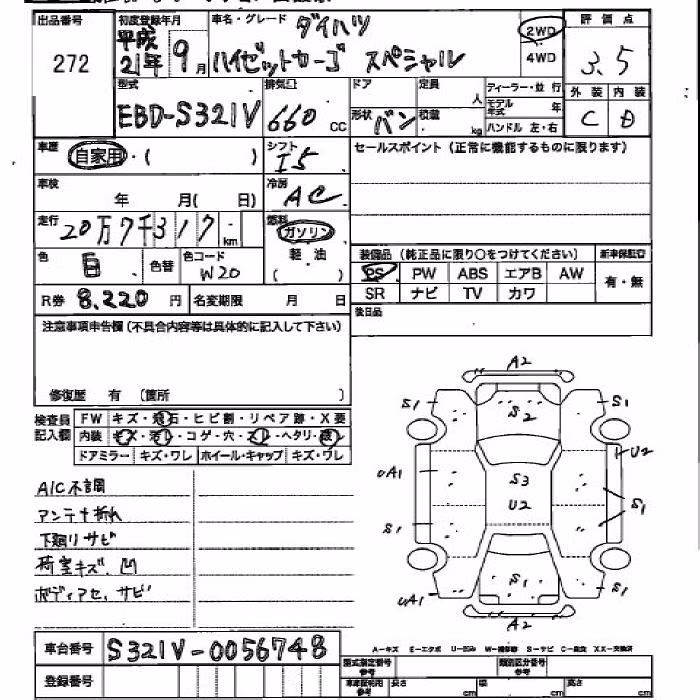 出品番号 初度登録年月 車名・グレード ダイハツ 2WD 評価点
272 平成21年 9月 ハイゼットカーゴ スペシャル 4WD 3.5
型式 排気量 ドア 定員 人 ディーラー・並行 外装 内装
EBD-S321V 660 CC 形状 バン 積載 kg モデル年式 年 C D
ハンドル 左・右
車歴 自家用・( ) シフト I5 セールスポイント(正常に機能するものに限ります)
車検 年 月( 日) 冷房 AC
走行 20万7千317 km 燃料 ガソリン
軽油
( )
色 白 色替 色コード W20 装備品(純正品に限り○をつけてください) 新車保証書
PS PW ABS エアB AW 有・無
R券 8,220円 名変期限 月 日 SR ナビ TV カワ
注意事項申告欄(不具合内容等は具体的に記入して下さい) 後日品
修復歴 有 (箇所 )
検査員 FW キズ・飛石・ヒビ割・リペア跡・X要
記入欄 内装 キズ・汚レ・コゲ・穴・スレ・ヘタリ・
ドアミラー キズ・ワレ ホイール・キャップ キズ・ワレ
A/C不調
アンテナ折れ
下廻りサビ
荷室キズ、凹
ボディアセ、サビ
A2
S1 S2 S1
UA1 S3 U2
U2
S1 S1
UA1 S1 S1
A2
車台番号 S321V-0056748
登録番号
A-キズ E-エクボ U-凹み W-補修跡 S-サビ C-腐食 XX-交換済
型式指定番号 参考 類別区分番号 参考
車庫証明用 参考 長さ cm 幅 cm 高さ cm